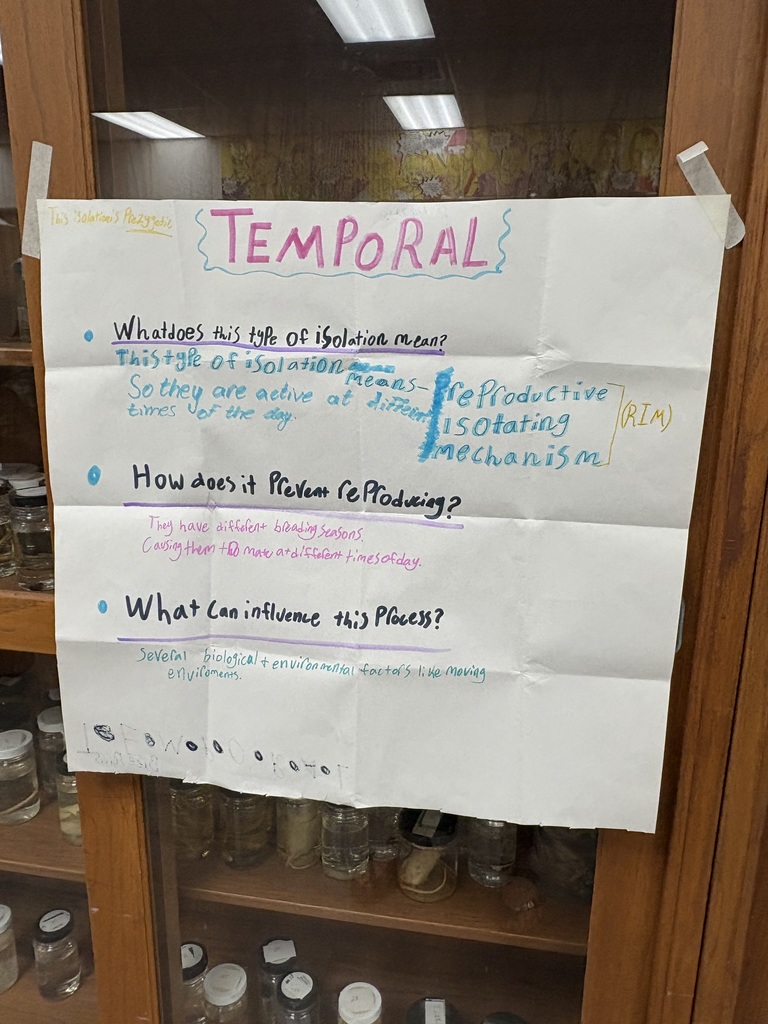 This isolation is Prezygotic
TEMPORAL
What does this type of isolation mean?
This type of isolation means-
So they are active at different
times of the day.
reproductive
isotating
mechanism
(RIM)
How does it Prevent reProducing?
They have different breading seasons.
Causing them to mate at different times of day.
What Can influence this Process?
Several biological + environmental factors like moving
enviroments.